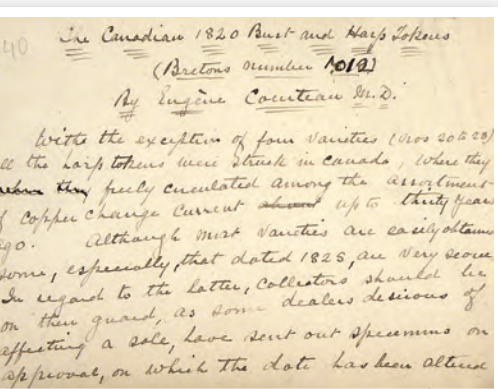 40
The Canadian 1820 Bust and Harp Tokens
(Bretons number 1012)
By Eugène Courteau M.D.
With the exception of four varieties (Nos 20 to 23)
ll the harp tokens were struck in Canada, where they
freely circulated among the assortment
f copper change current about up to thirty year
ago. Although most varieties are easily obtaine
some, especially, that dated 1825, are very scarce
In regard to the latter, collectors should be
on their guard, as some dealers desirous of
affecting a sale, have sent out specimens on
approval, on which the date has been altered